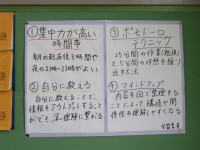 ①集中力が高い
時間帯
朝の起床後3時間や
夜の21時〜23時がよい
②自分に教える
自分に教えることで、
情報をアウトプットすること
ができ、正確な理解に繋がる
③ポモドーロ
テクニック
25分間の作業(勉強)
と5分間の休憩を繰り
返す方法
④マインドマップ
内容を図で整理する
ことによって構造や関
係性を理解しやすくなる
学習委員